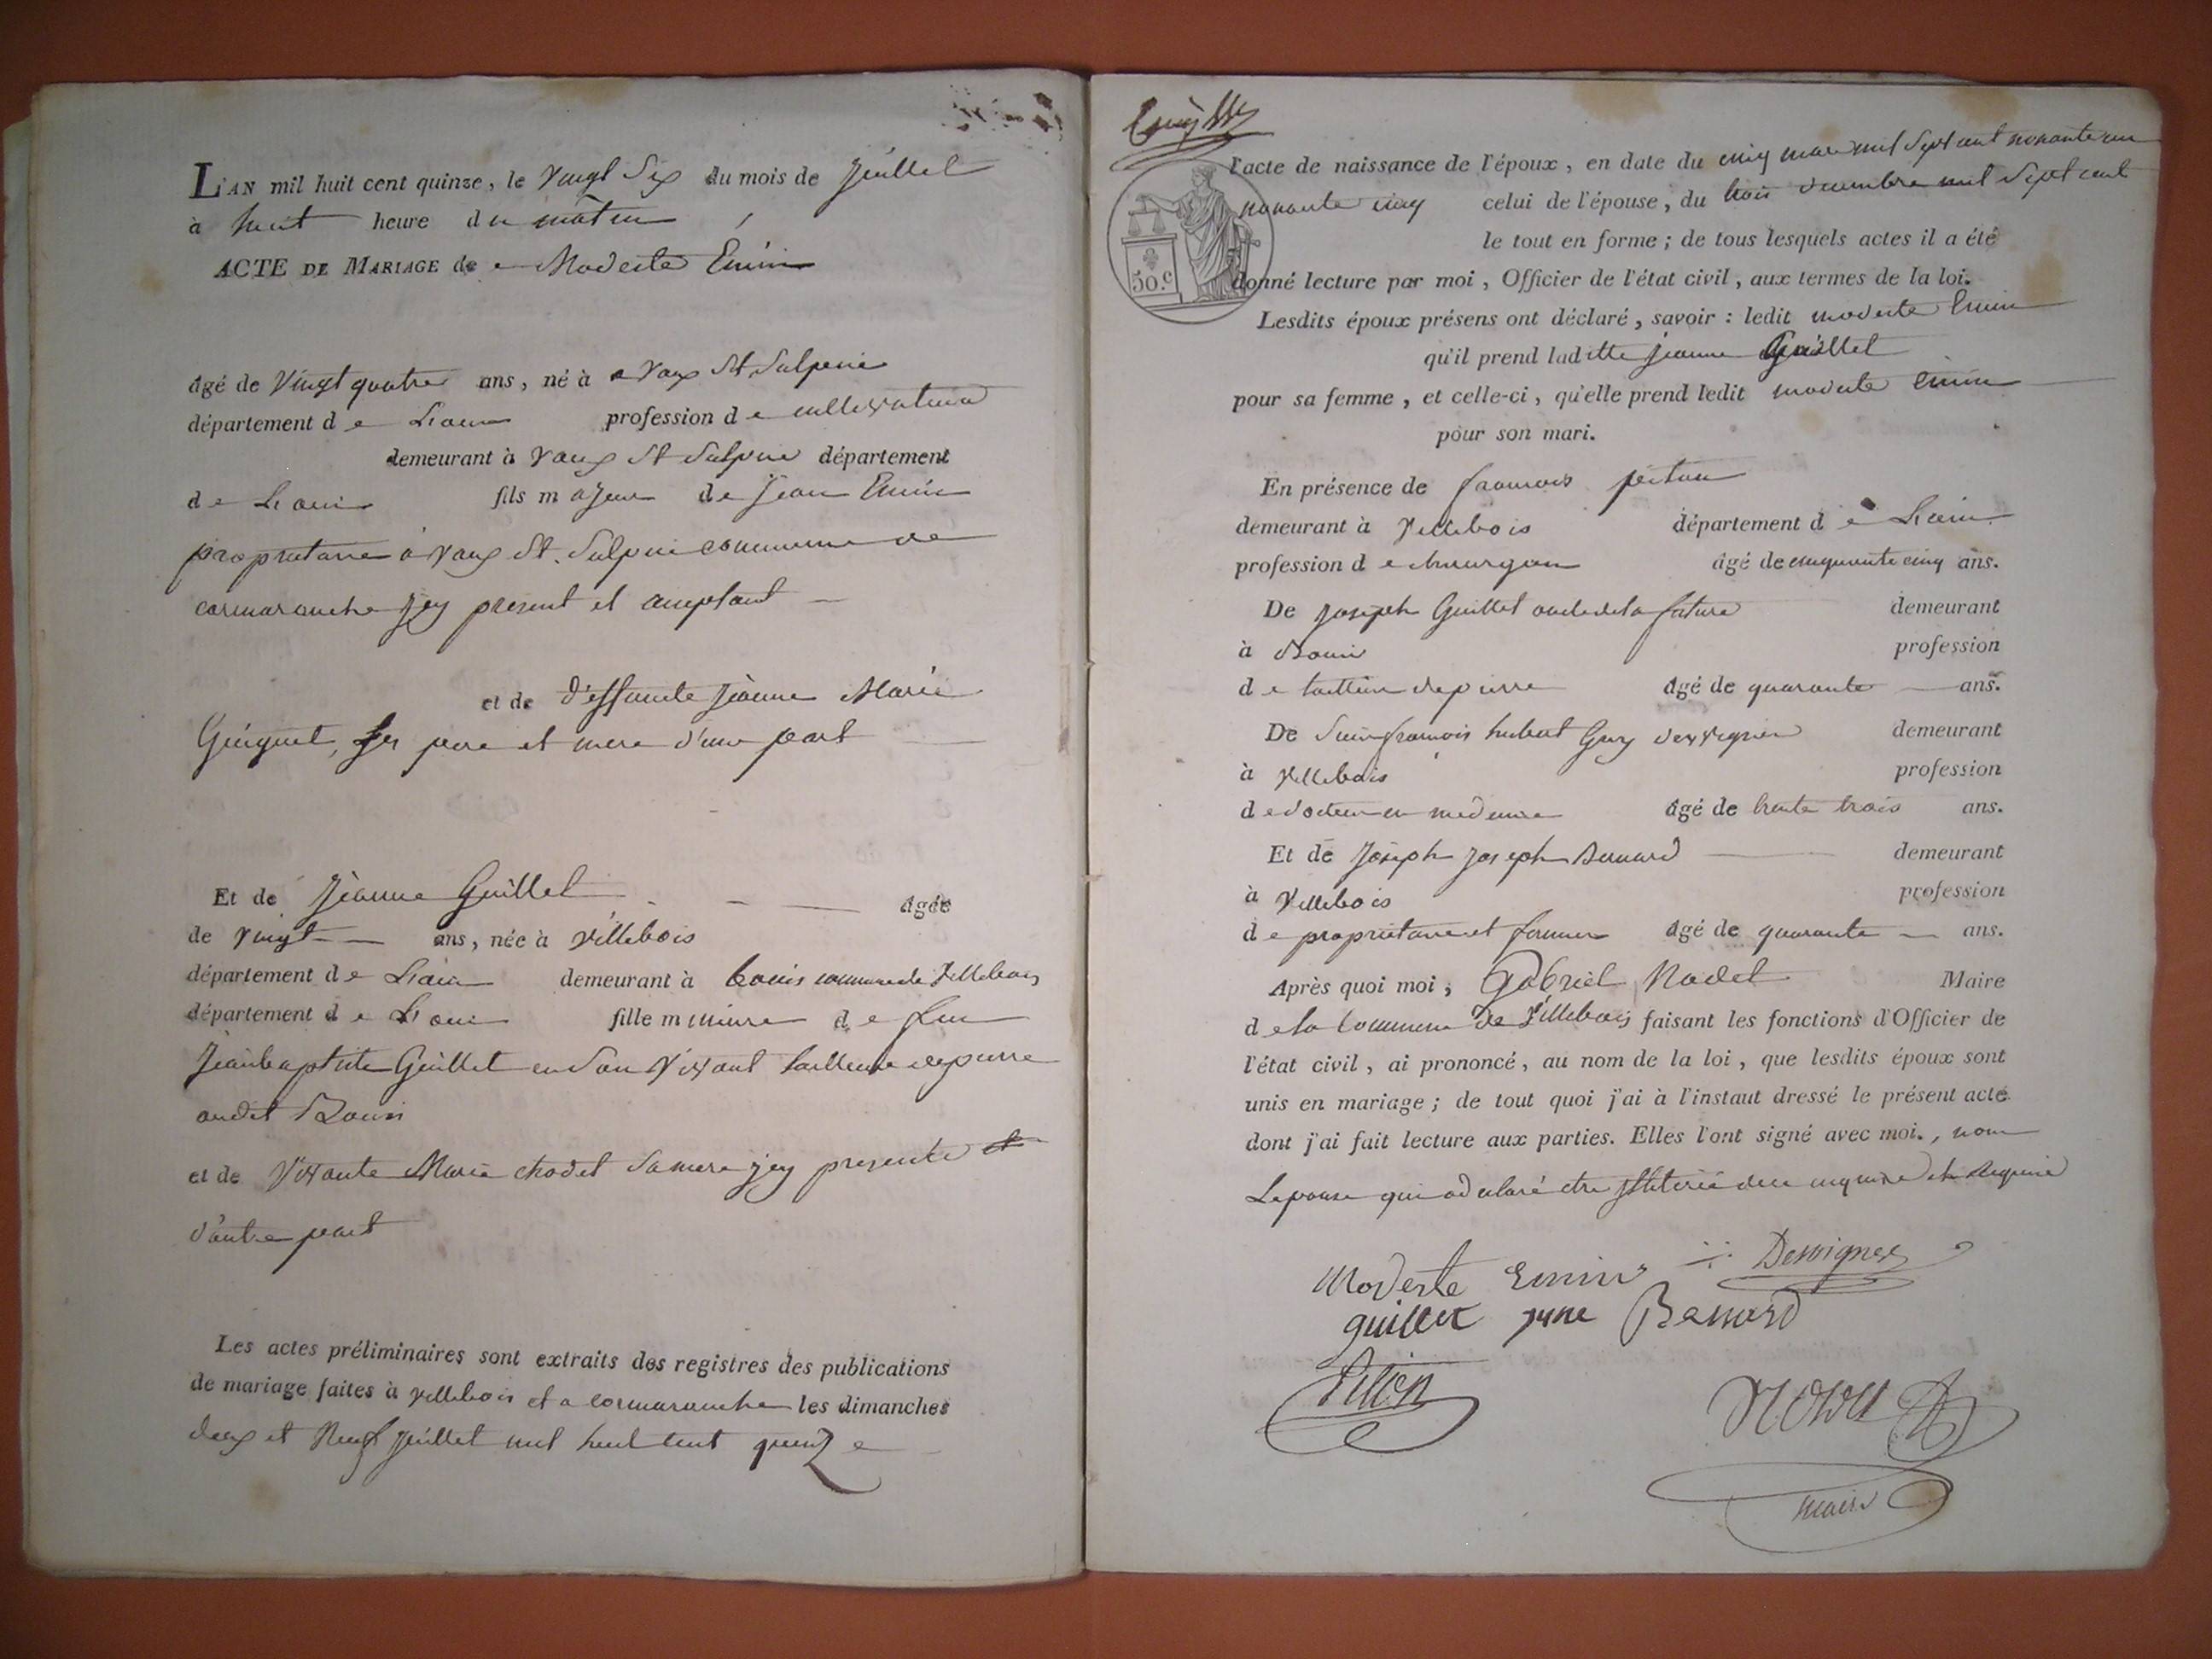 L'AN mil huit cent quinze, le vingt six du mois de juillet
à huit heure du matin
ACTE DE MARIAGE de Modeste Emin
âgé de vingt quatre ans, né à Vaux St Sulpice
département de Lain profession de cultivateur
demeurant à Vaux St Sulpice département
de Lain fils majeur de Jean Emin
propriétaire à Vaux St. Sulpice commune de
cormaranche jcy present et acceptant
et de deffunte jeanne Marie
Guiguet, ses pere et mere d'une part
Et de jeanne Guillet âgée
de vingt ans, née à Villebois
département de Lain demeurant à Bouis commune de Villebois
département de Lain fille mineure de feu
jeanbaptiste Guillet en son vivant tailleur de pierre
audit Bouis
et de vivante Marie chodet sa mere jcy presente et
d'autre part
Les actes préliminaires sont extraits des registres des publications
de mariage faites à villebois et a cormaranche les dimanches
deux et Neuf juillet mil huit cent quinze
l'acte de naissance de l'époux, en date du cinq mai mil sept cent nonante un
celui de l'épouse, du trois decembre mil sept cent
nonante cinq
le tout en forme ; de tous lesquels actes il a été
50.c
donné lecture par moi, Officier de l'état civil, aux termes de la loi.
Lesdits époux présens ont déclaré, savoir : ledit modeste Emin
qu'il prend laditte jeanne Guillet
pour sa femme, et celle-ci, qu'elle prend ledit modeste Emin
pour son mari.
En présence de francois
demeurant à Villebois département de Lain
profession de chirurgien âgé de cinquante cinq ans.
De joseph Guillet oncle de la future demeurant
à Bouis profession
de tailleur de pierre âgé de quarante ans.
De francois hubert Guy demeurant
à Villebois profession
de docteur en médecine âgé de trente trois ans.
Et de joseph joseph Bernard demeurant
à Villebois profession
de propriétaire et fermier âgé de quarante ans.
Après quoi moi, Gabriel Nodet Maire
de la commune de Villebois faisant les fonctions d'Officier de
l'état civil, ai prononcé, au nom de la loi, que lesdits époux sont
unis en mariage ; de tout quoi j'ai à l'instant dressé le présent acte
dont j'ai fait lecture aux parties. Elles l'ont signé avec moi., non
Lepouse qui a declaré etre jlliterée de ce enquise et requise
Modeste Emin
guillet Bernard
maire